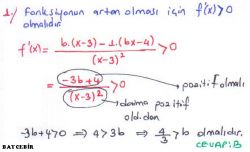 1-) Fonksiyonun artan olması için f'(x)>0
olmalıdır.
f'(x)= b.(x-3) - 1.(bx-4) / (x-3)² >0
= -3b+4 / (x-3)² >0
pozitif olmalı
daima pozitif
olduğundan
-3b+4>0 ⇒ 4>3b ⇒ 4/3 >b olmalıdır.
CEVAP:B